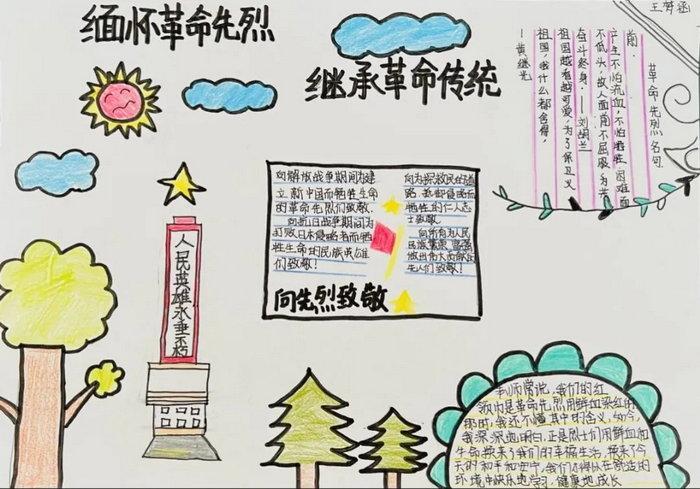 缅怀革命先烈
继承革命传统
王梦涵
革命先烈名句
产生不怕流血,不怕牺牲,困难面
前,
不低头,敌人面前不屈服,为共
奋斗终身。——刘胡兰
祖国越看越可爱,为了保卫
祖国,我什么都舍得,
—黄继光
向解放战争期间为建
立新中国而牺牲生命
的革命先烈们致敬。
向抗日战争期间为
打败日本侵略者而牺
牲生命的民族英雄
们致敬!
牺牲的仁人志
士致敬
向所有为人民
先人们致敬!
向先烈致敬
人民英雄永垂不朽
老师常说,我们的红
领巾是革命先烈用鲜血染红的
那时,我还不懂其中的含义,如今,
我深深地明白,正是烈士们用鲜血和
生命换来了我们的幸福生活,换来了今
天的和平和安宁,我们才得以在舒适的
环境中快乐地学习,健康地成长